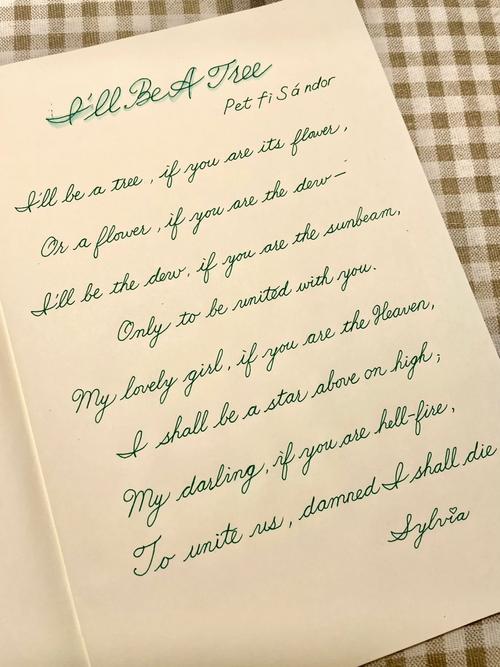 I'll Be A Tree
Petfi Sándor
I'll be a tree, if you are its flower,
Or a flower, if you are the dew—
I'll be the dew, if you are the sunbeam,
Only to be united with you.
My lovely girl, if you are the Heaven,
I shall be a star above on high;
My darling, if you are hell-fire,
To unite us, damned I shall die
Sylvia